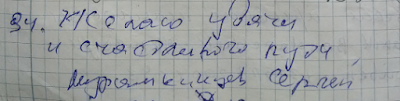 34. Желаю удачи
и счастливого пути
Сергей